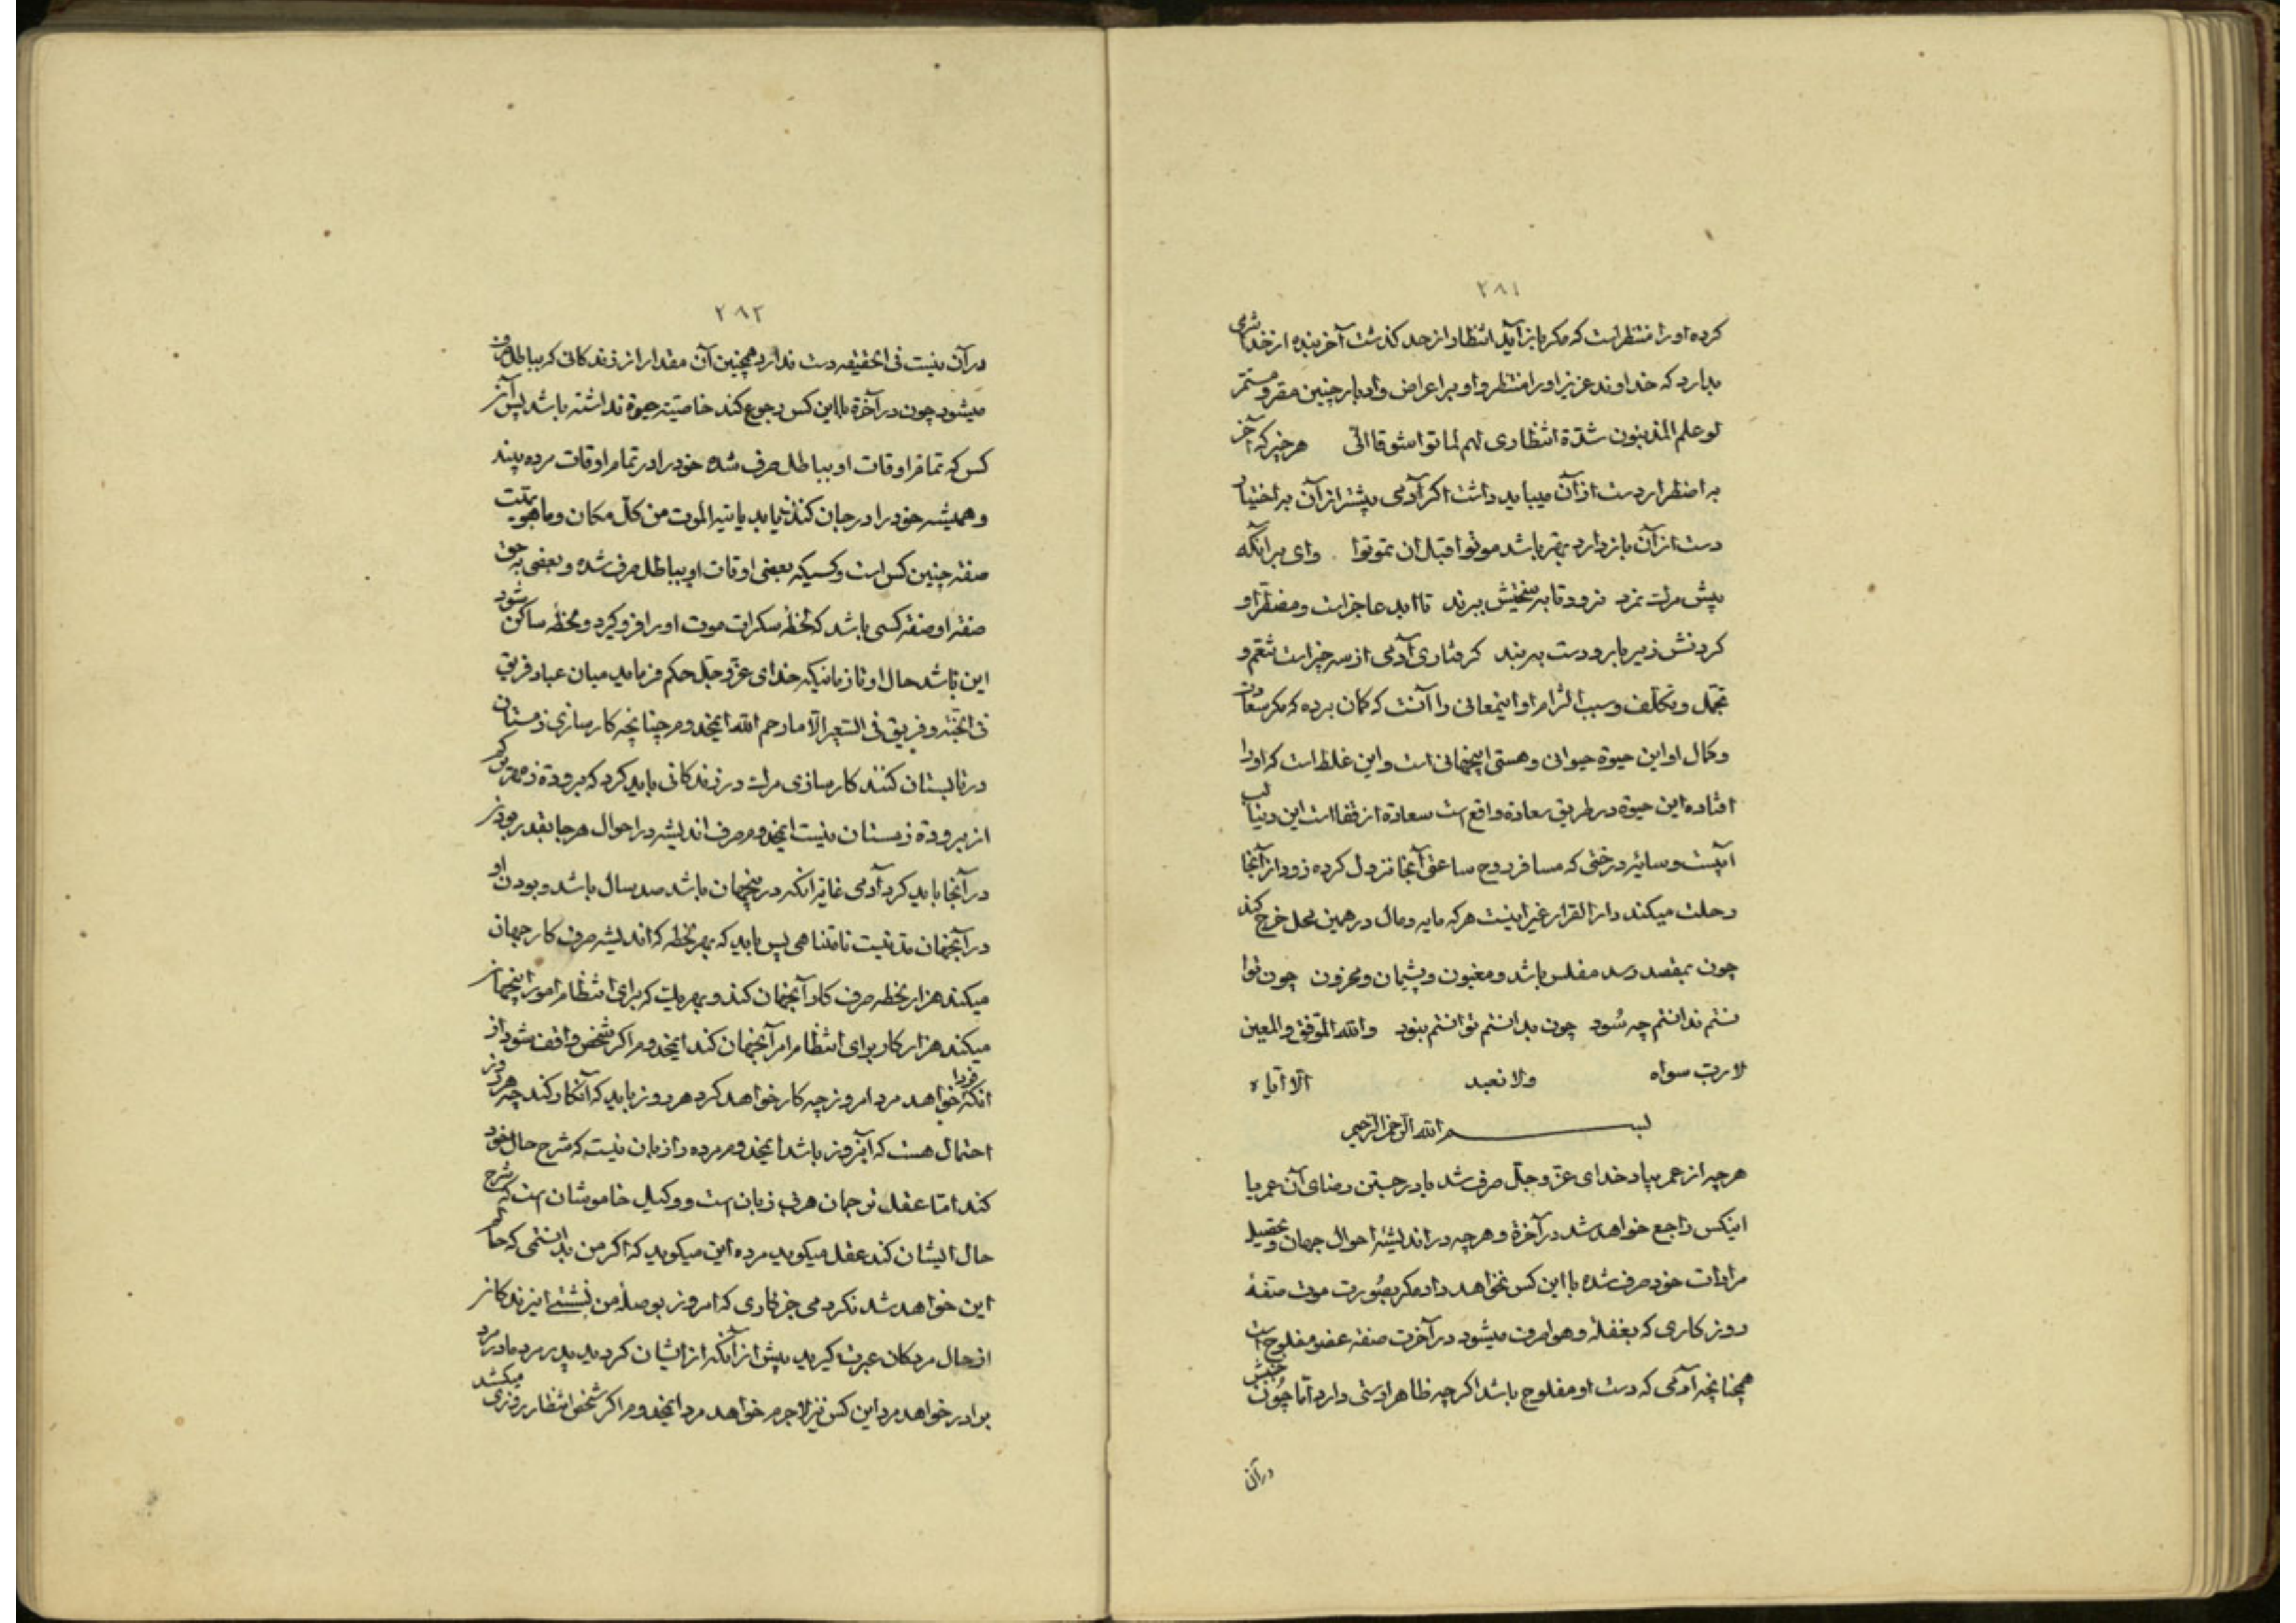 ٢٨١
کرده او را منتظر است که مکر باز آید انتظار از حد کذشت آخر بنده از خدا شرمی
بدارد که خداوند عزیز او را منتظر و او بر اعراض و ادبار چنین مقر و مستمر
لو علم المذنبون شدّة انتظاری لهم لماتوا شوقا الیّ هر چیز که آخر
به اضطرار دست از آن میباید داشت اکر آدمی پیشتر از آن به اختیار
دست از آن باز دارد بهتر باشد موتوا قبل ان تموتوا وای بر آنکه
پیش مرک نمرد نرود تا به سختیش ببرند تا ابد عاجز است و مضطر او
کردنش زیر بار و دست به بند کرفتاری آدمی از سه چیز است تنعّم و
تجمّل و تکلّف و سبب التزام او اینمعانی را آنست که کمان برده که مکر سعادت
و کمال او این حیوة حیوانی و هستی اینجهانی است و این غلط است که او را
افتاده این حیوة در طریق سعادة واقع است سعادة از قفا است این دنیا لب
آبیست و سایه درختی که مسافر روح ساعتی آنجا نزول کرده زود از آنجا
رحلت میکند دار القرار غیر اینست هر که مایه و مال در همین محل خرج کند
چون بمقصد رسد مفلس باشد و مغبون و پشیمان و محزون چون توا
نستم ندانستم چه سُود چون بدانستم توانستم نبود والله الموّفق والمعین
لا ربّ سواه ولا نعبد الّا ایّاه
بسم الله الرّحمن الرّحیم
هر چه از عمر بیاد خدای عزّ و جلّ صرف شد یا در جستن رضای آن عمر با
اینکس راجع خواهد شد در آخرة و هر چه در اندیشهٔ احوال جهان و تحصیل
مرادات خود صرف شده با این کس نخواهد داد مکر بصُورت موت صفهٔ
روز کاری که بغفلة و هوا صرف میشود در آخرت صفة عضو مفلوج است
همچنانچه آدمی که دست او مفلوج باشد اکر چه ظاهرا دستی دارد امّا چُون جنبش
در آن
٢٨٢
در آن نیست فی الحقیقه دست ندارد همچنین آن مقدار از زندکانی که بباطل صرف
میشود چون در آخرة با این کس رجوع کند خاصیّة حیوة نداشته باشد پس آنر
کس که تمام اوقات او بباطل صرف شده خود را در تمام اوقات مرده بیند
و همیشه خود را در جان کندن یابد یاتیه الموت من کلّ مکان و ما هو بمیّت
صفة چنین کس است و کسیکه بعضی اوقات او بباطل صرف شده و بعضی به حق
صفة او صفة کسی باشد که لحظه سکرات موت او را فرو کیرد و لحظه ساکن شود
این باشد حال او تا زمانیکه خدای عزّ و جلّ حکم فرماید میان عباد فریق
فی الجنّة و فریق فی السّعیر الّا ما رحم الله ایمخدوم چنانچه کارسازی زمستان
در تابستان کنند کارسازی مرک در زندکانی باید کرد که برودة زمهریر کمر
از برودة زمستان نیست ایمخدوم صرف اندیشه در احوال هر جا بقدر بودن
در آنجا باید کرد آدمی غایة آنکه در اینجهان باشد صد سال باشد و بودن او
در آنجهان مدّتیست نامتناهی پس باید که بهر لحظه که اندیشه صرف کار جهان
میکند هزار لحظه صرف کار آنجهان کند و بهر یک که برای انتظام امور اینجهان
میکند هزار کار برای انتظام امر آنجهان کند ایمخدوم اکر شخصی واقف شود از
آنکه فردا خواهد مرد امروز چه کار خواهد کرد هر روز باید که آنکار کند چه هر روز
احتمال هست که آنروز باشد ایمخدوم مرده را زبان نیست که شرح حال خود
کند امّا عقل ترجمان هر بی زبان است و وکیل خاموشان است که شرح
حال ایشان کند عقل میکوید مرده این میکوید که اکر من بدانستمی که حالم
این خواهد شد نکردمی جز کاری که امروز بوصلهٔ من نشستی ای زندکان
از حال مردکان عبرت کیرید پیش از آنکه از ایشان کردید پدر مرد مادر مرد
برادر خواهد مرد این کس نیز لاجرم خواهد مرد ایمخدوم اکر شخص انتظار روزی میکشد